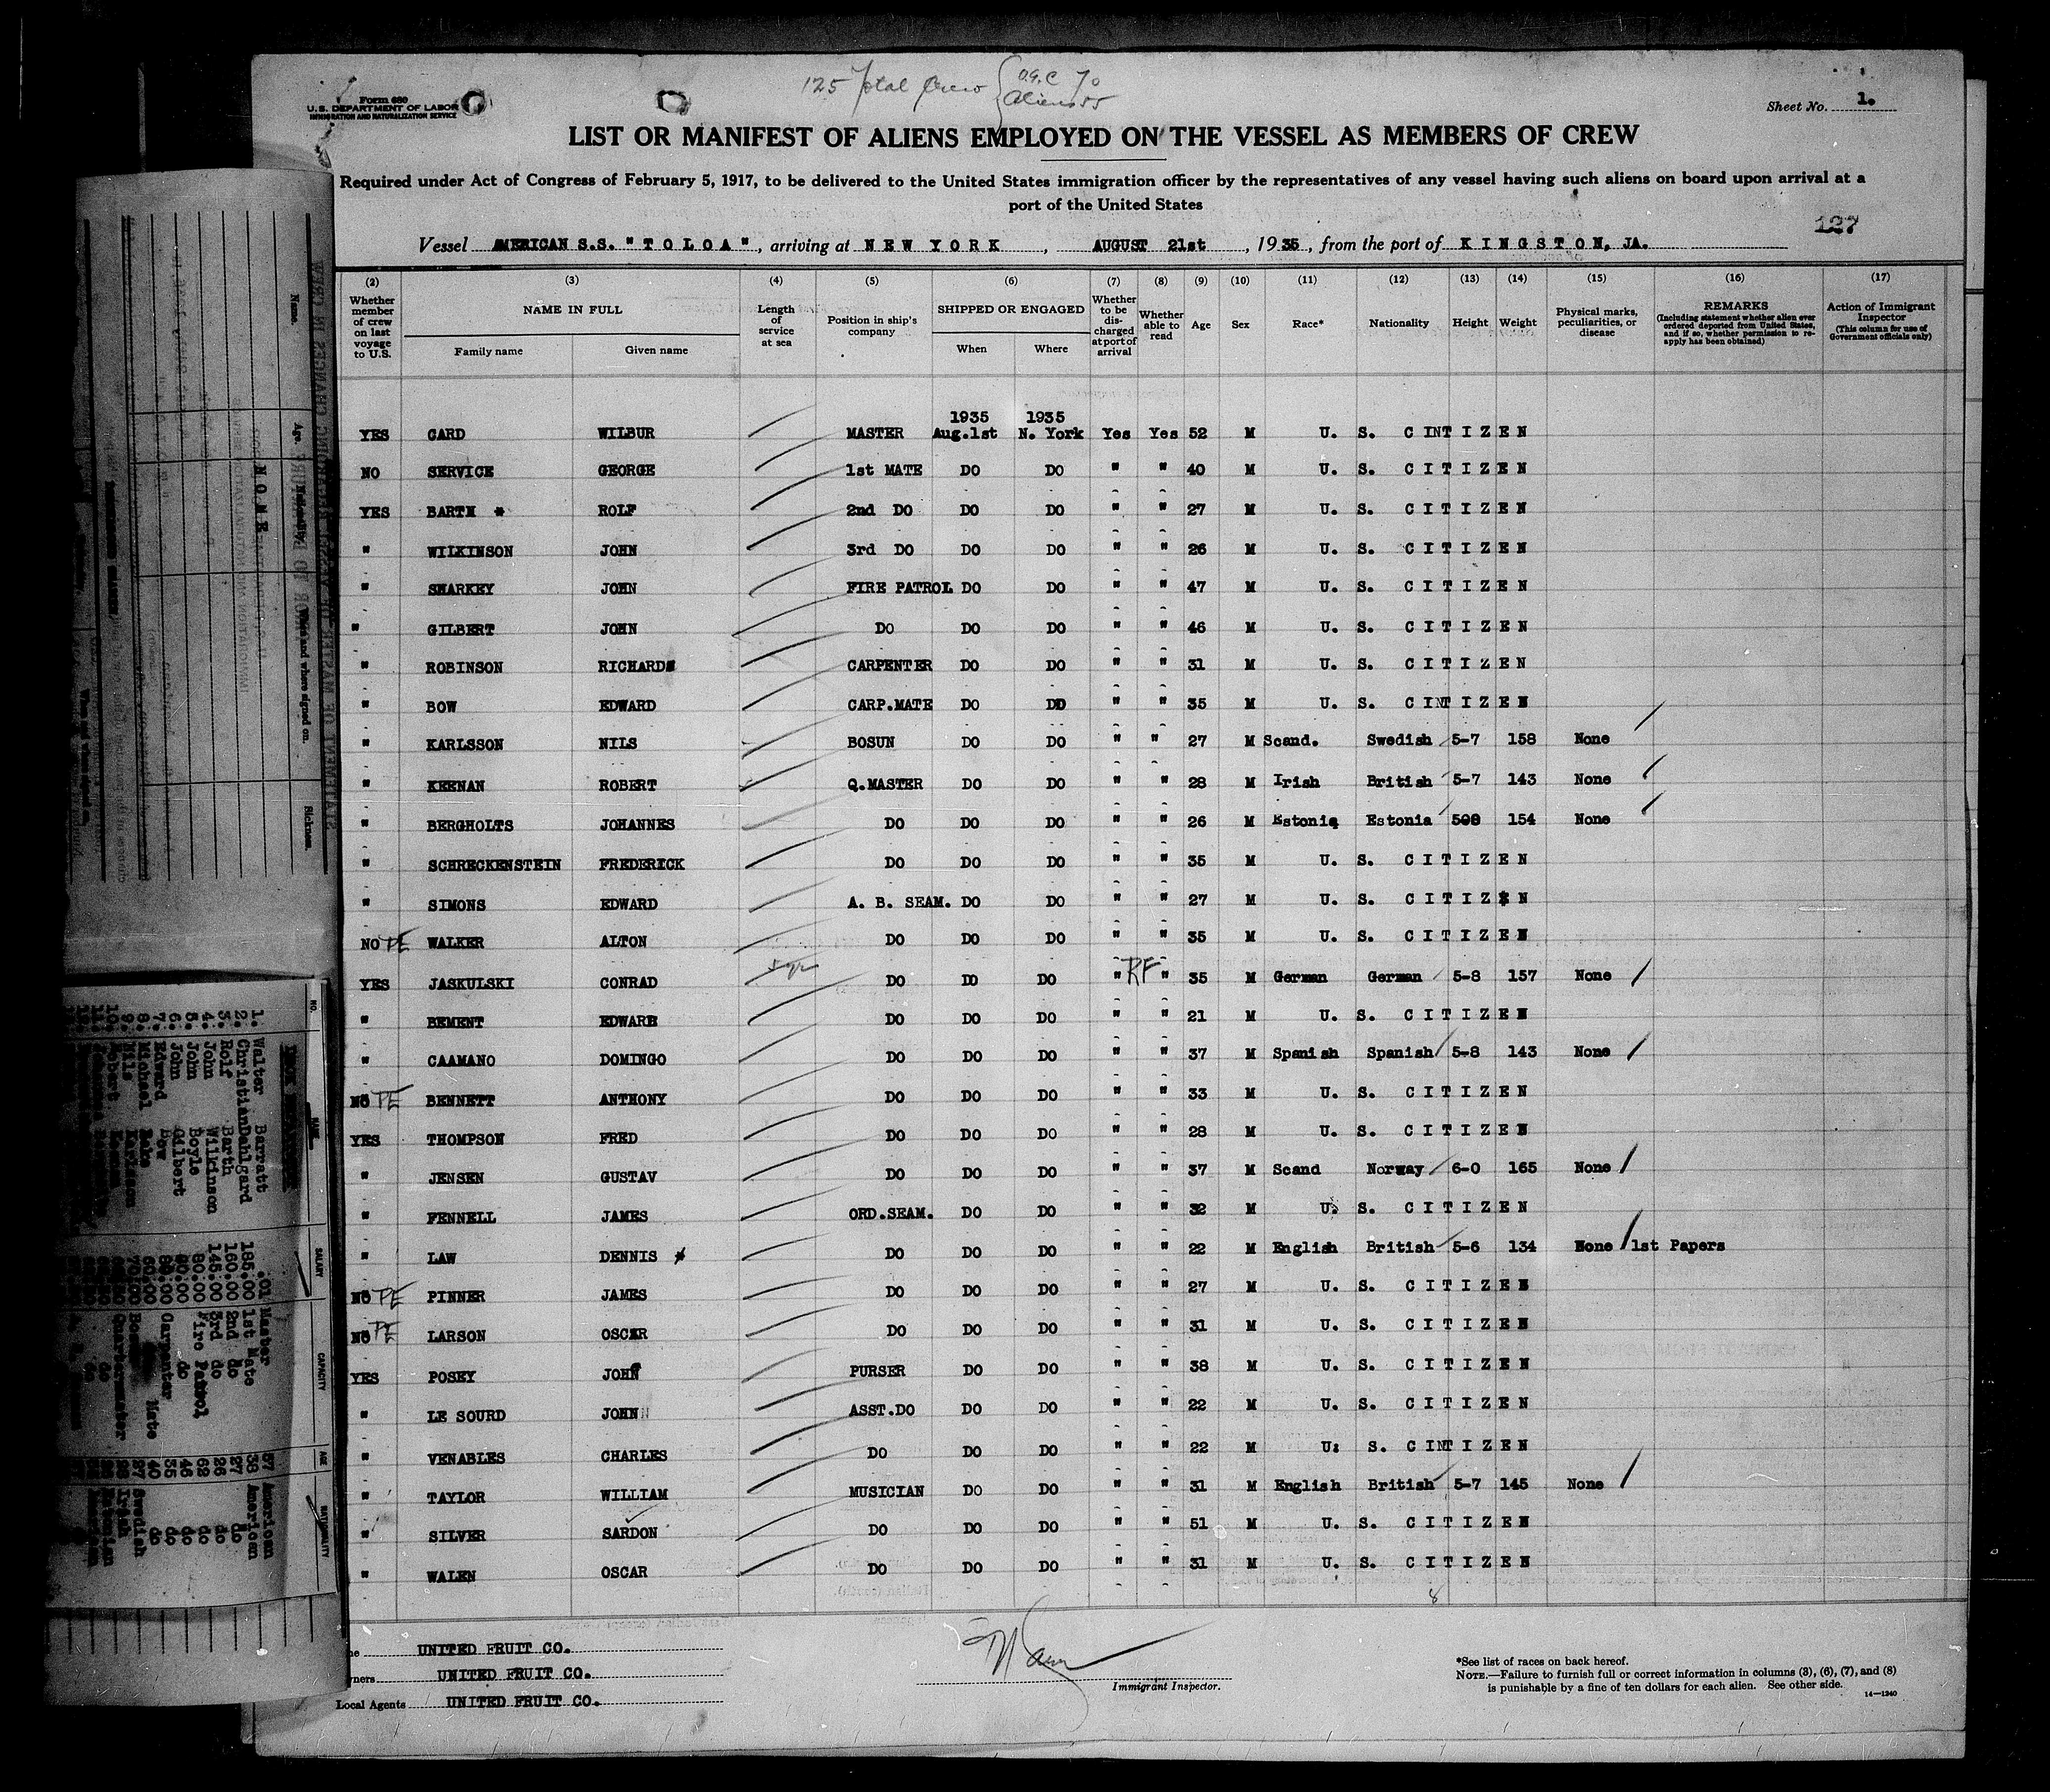 125 Total Crew { U.S.C 70
Aliens 55
Form 680
U. S. DEPARTMENT OF LABOR
IMMIGRATION AND NATURALIZATION SERVICE
Sheet No. 1.
LIST OR MANIFEST OF ALIENS EMPLOYED ON THE VESSEL AS MEMBERS OF CREW
Required under Act of Congress of February 5, 1917, to be delivered to the United States immigration officer by the representatives of any vessel having such aliens on board upon arrival at a
port of the United States
127
Vessel AMERICAN S.S. "TOLOA", arriving at NEW YORK, AUGUST 21st, 1935, from the port of KINGSTON, JA.
(2) (3) (4) (5) (6) (7) (8) (9) (10) (11) (12) (13) (14) (15) (16) (17)
Whether member of crew on last voyage to U.S. NAME IN FULL Family name Given name Length of service at sea Position in ship's company SHIPPED OR ENGAGED When Where Whether to be discharged at port of arrival Whether able to read Age Sex Race* Nationality Height Weight Physical marks, peculiarities, or disease REMARKS (Including statement whether alien ever ordered deported from United States, and if so, whether permission to reapply has been obtained) Action of Immigrant Inspector (This column for use of Government officials only)
1935 1935
YES CARD WILBUR MASTER Aug.1st N. York Yes Yes 52 M U. S. CINTIZEN
NO SERVICE GEORGE 1st MATE DO DO " " 40 M U. S. CITIZEN
YES BARTH * ROLF 2nd DO DO DO " " 27 M U. S. CITIZEN
" WILKINSON JOHN 3rd DO DO DO " " 26 M U. S. CITIZEN
" SHARKEY JOHN FIRE PATROL DO DO " " 47 M U. S. CITIZEN
" GILBERT JOHN DO DO DO " " 46 M U. S. CITIZEN
" ROBINSON RICHARD CARPENTER DO DO " " 31 M U. S. CITIZEN
" BOW EDWARD CARP.MATE DO DO " " 35 M U. S. CINTIZEN
" KARLSSON NILS BOSUN DO DO " " 27 M Scand. Swedish 5-7 158 None
" KEENAN ROBERT Q.MASTER DO DO " " 28 M Irish British 5-7 143 None
" BERGHOLTS JOHANNES DO DO DO " " 26 M Estonia Estonia 508 154 None
" SCHRECKENSTEIN FREDERICK DO DO DO " " 35 M U. S. CITIZEN
" SIMONS EDWARD A. B. SEAM. DO DO " " 27 M U. S. CITIZEN
NO PE WALKER ALTON DO DO DO " " 35 M U. S. CITIZEN
YES JASKULSKI CONRAD 5 yr DO DO DO " RF " 35 M German German 5-8 157 None
" BEMENT EDWARD DO DO DO " " 21 M U. S. CITIZEN
" CAAMANO DOMINGO DO DO DO " " 37 M Spanish Spanish 5-8 143 None
NO PE BENNETT ANTHONY DO DO DO " " 33 M U. S. CITIZEN
YES THOMPSON FRED DO DO DO " " 28 M U. S. CITIZEN
" JENSEN GUSTAV DO DO DO " " 37 M Scand Norway 6-0 165 None
" FENNELL JAMES ORD.SEAM. DO DO " " 32 M U. S. CITIZEN
" LAW DENNIS DO DO DO " " 22 M English British 5-6 134 None 1st Papers
NO PE PINNER JAMES DO DO DO " " 27 M U. S. CITIZEN
NO PE LARSON OSCAR DO DO DO " " 31 M U. S. CITIZEN
YES POSEY JOHN PURSER DO DO " " 38 M U. S. CITIZEN
" LE SOURD JOHN ASST.DO DO DO " " 22 M U. S. CITIZEN
" VENABLES CHARLES DO DO DO " " 22 M U: S. CINTIZEN
" TAYLOR WILLIAM MUSICIAN DO DO " " 31 M English British 5-7 145 None
" SILVER SARDON DO DO DO " " 51 M U. S. CITIZEN
" WALEN OSCAR DO DO DO " " 31 M U. S. CITIZEN
8
UNITED FRUIT CO.
UNITED FRUIT CO.
Local Agents UNITED FRUIT CO.
Immigrant Inspector.
*See list of races on back hereof.
NOTE.—Failure to furnish full or correct information in columns (3), (6), (7), and (8)
is punishable by a fine of ten dollars for each alien. See other side.
14—1240